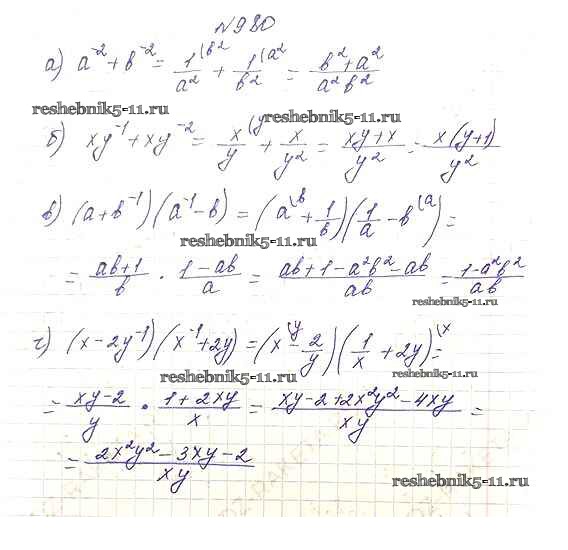 N980
а) a⁻² + b⁻² = 1/a² (b² + 1/b² (a² = (b² + a²)/(a²b²)
reshebnik5-11.ru reshebnik5-11.ru
б) xy⁻¹ + xy⁻² = x/y (y + x/y² = (xy + x)/y² = x(y+1)/y²
в) (a + b⁻¹)(a⁻¹ - b) = (a (b + 1/b)(1/a - b (a) =
reshebnik5-11.ru
= (ab+1)/b · (1-ab)/a = (ab + 1 - a²b² - ab)/(ab) = (1-a²b²)/(ab)
reshebnik5-11.ru
г) (x - 2y⁻¹)(x⁻¹ + 2y) = (x (y - 2/y)(1/x + 2y) (x =
reshebnik5-11.ru reshebnik5-11.ru
= (xy-2)/y · (1+2xy)/x = (xy-2+2x²y²-4xy)/(xy) =
= (2x²y² - 3xy - 2)/(xy)
reshebnik5-11.ru